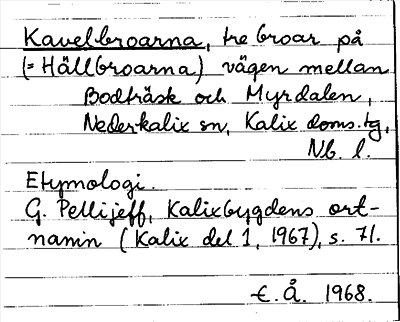 Kavelbroarna, tre broar på
(= Hällbroarna) vägen mellan
Bodträsk och Myrdalen,
Nederkalix sn, Kalix doms.tg,
Nb. l.
Etymologi.
G. Pellijeff, Kalixbygdens ort-
namn (Kalix del 1, 1967), s. 71.
E.Å. 1968.